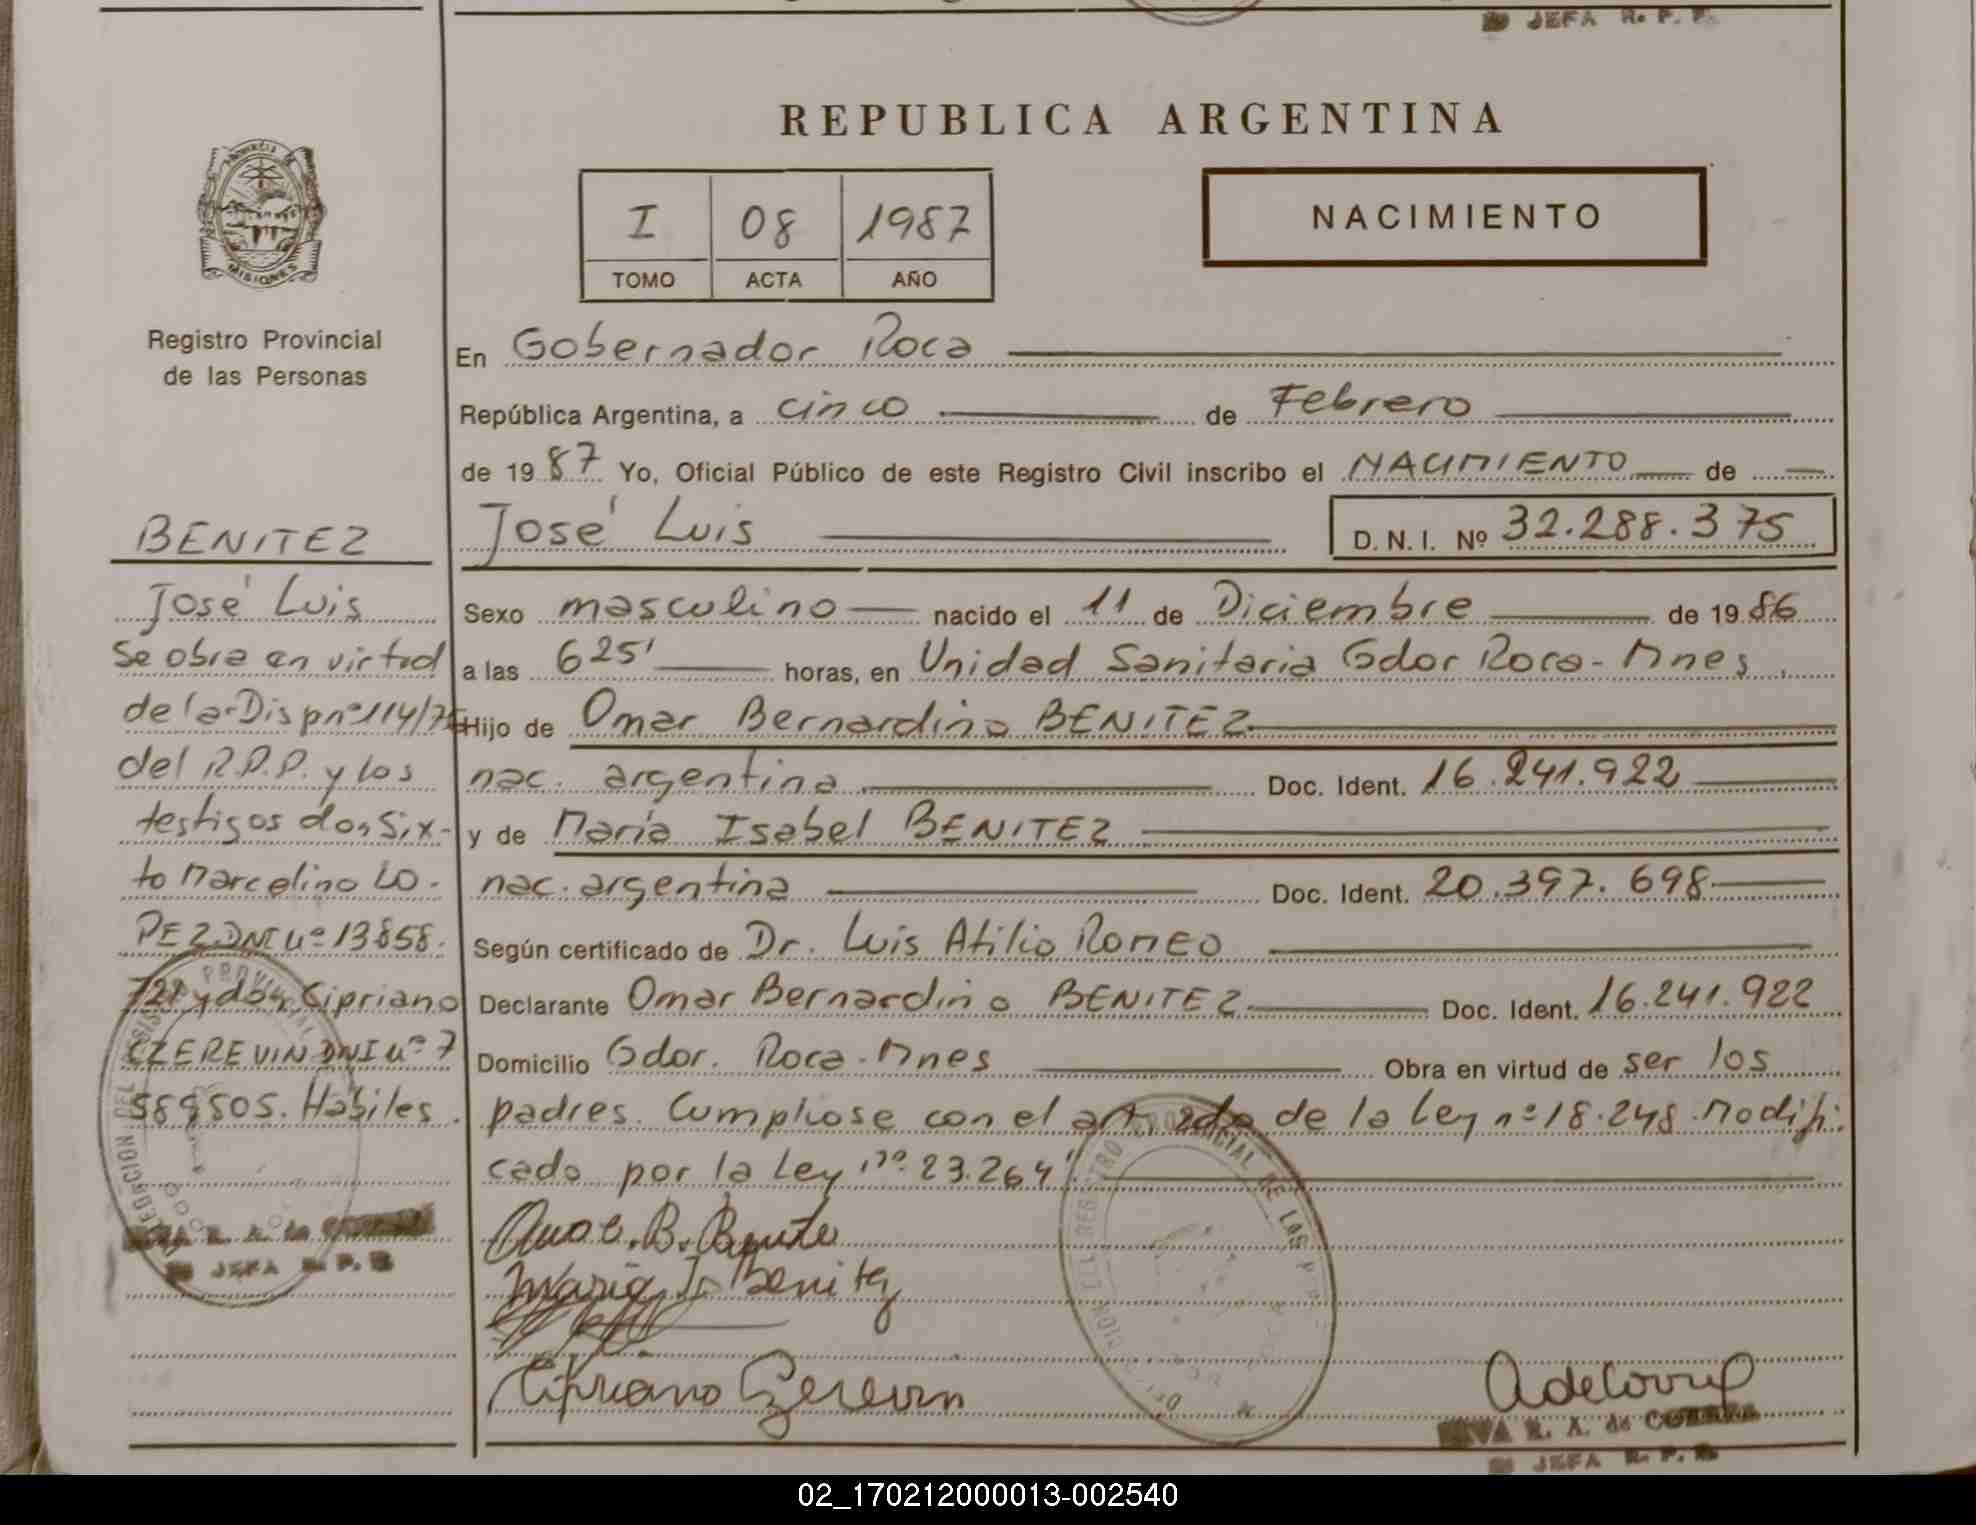 JEFA R. P. P.
REPUBLICA ARGENTINA
PROVINCIA DE
MISIONES
Registro Provincial
de las Personas
I 08 1987
TOMO ACTA AÑO
NACIMIENTO
En Gobernador Roca
República Argentina, a cinco de Febrero
de 1987 Yo, Oficial Público de este Registro Civil inscribo el NACIMIENTO de
José Luis D. N. I. Nº 32.288.375
Sexo masculino nacido el 11 de Diciembre de 1986
a las 625' horas, en Unidad Sanitaria Gdor Roca-Mnes.
Hijo de Omar Bernardino BENITEZ
nac. argentina Doc. Ident. 16.241.922
y de María Isabel BENITEZ
nac. argentina Doc. Ident. 20.397.698
Según certificado de Dr. Luis Atilio ROMEO
Declarante Omar Bernardino BENITEZ Doc. Ident. 16.241.922
Domicilio Gdor. Roca-Mnes Obra en virtud de ser los
padres. Cumpliose con el art. 2do de la Ley nº 18.248 Modifi-
cado por la Ley nº 23.264"
Omar B. Benitez
Maria I. Benitez
Cipriano Czerevin
BENITEZ
José Luis
Se obra en virtud
de la Disp nº 114/75
del R.P.P. y los
testigos don Six-
to Marcelino LO-
PEZ DNI nº 13.858.
721 y don Cipriano
CZEREVIN DNI nº 7
589505. Hábiles.
R. A. de
JEFA R. P. P.
R. A. de CORREA
JEFA R. P. P.
02_170212000013-002540